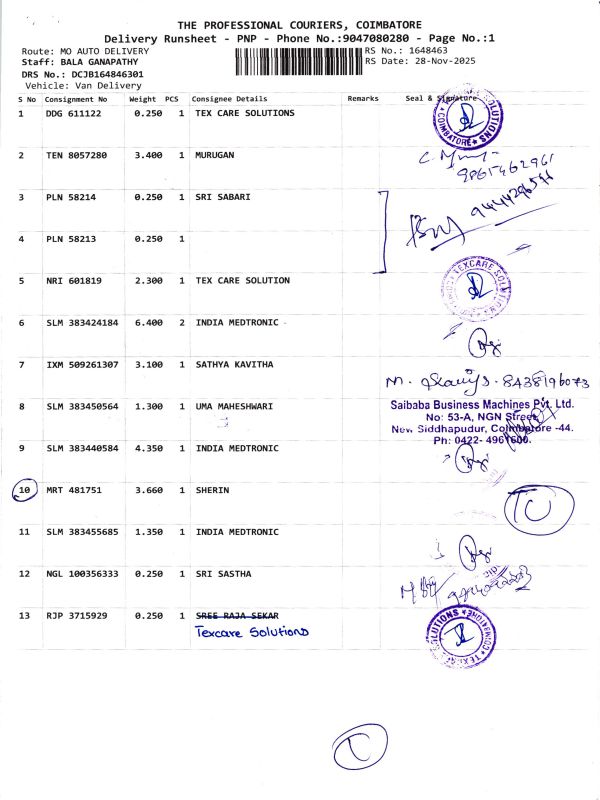 THE PROFESSIONAL COURIERS, COIMBATORE
Delivery Runsheet - PNP - Phone No.:9047080280 - Page No.:1
Route: MO AUTO DELIVERY
RS No.: 1648463
Staff: BALA GANAPATHY
RS Date: 28-Nov-2025
DRS No.: DCJB164846301
Vehicle: Van Delivery
S No Consignment No Weight PCS Consignee Details Remarks Seal & Signature
1 DDG 611122 0.250 1 TEX CARE SOLUTIONS
SOLUTIONS COIMBATORE
2 TEN 8057280 3.400 1 MURUGAN
9865462961
3 PLN 58214 0.250 1 SRI SABARI
4 PLN 58213 0.250 1
5 NRI 601819 2.300 1 TEX CARE SOLUTION
TEXCARE SOLUTIONS
6 SLM 383424184 6.400 2 INDIA MEDTRONIC
7 IXM 509261307 3.100 1 SATHYA KAVITHA
8438196073
8 SLM 383450564 1.300 1 UMA MAHESHWARI
Saibaba Business Machines Pvt. Ltd.
No: 53-A, NGN Street,
New Siddhapudur, Coimbatore -44.
Ph: 0422- 4961600.
9 SLM 383440584 4.350 1 INDIA MEDTRONIC
10 MRT 481751 3.660 1 SHERIN
11 SLM 383455685 1.350 1 INDIA MEDTRONIC
12 NGL 100356333 0.250 1 SRI SASTHA
13 RJP 3715929 0.250 1 SREE RAJA SEKAR
Texcare Solutions
TEXCARE SOLUTIONS COIMBATORE